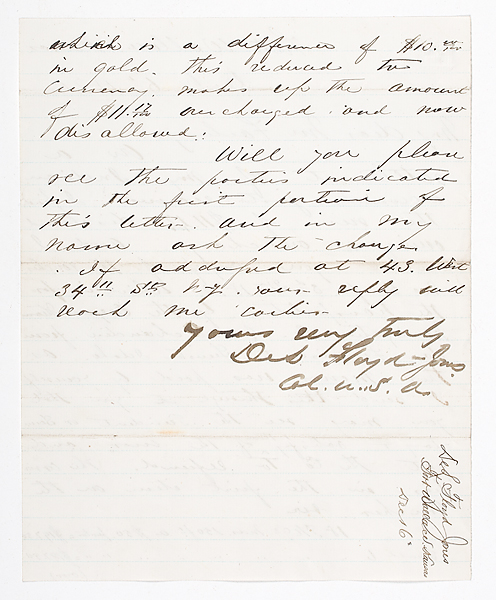 which is a difference of $10.00/100
in gold. this reduced to
Currency makes up the amount
of $11.17/100 overcharged. and now
disallowed.
Will you please
see the parties indicated
in the first portion of
this letter. and in my
name ask the change
. If addressed at 43. West
34th St. N.Y. your reply will
reach me earlier
yours very truly
De L Floyd-Jones
Col. U.S.A.
De L Floyd Jones
Dec 6"